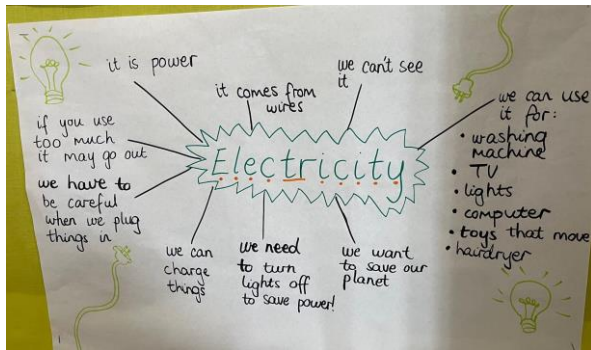 it is power
it comes from
wires
we can't see
it
we can use
it for:
• washing
machine
• TV
• lights
• computer
• toys that move
• hairdryer
if you use
too much
it may go out
Electricity
we have to
be careful
when we plug
things in
we can
charge
things
we need
to turn
lights off
to save power!
we want
to save our
planet